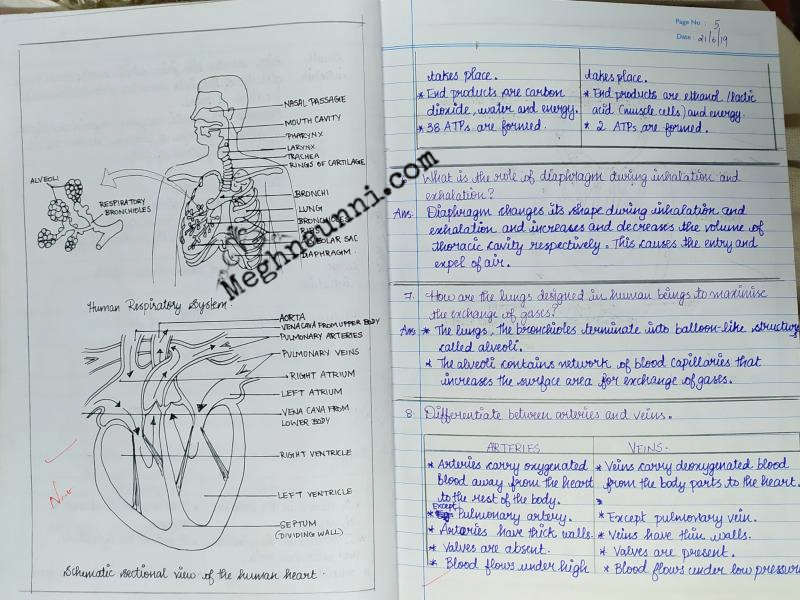 NASAL PASSAGE
MOUTH CAVITY
PHARYNX
LARYNX
TRACHEA
RINGS OF CARTILAGE
ALVEOLI
RESPIRATORY
BRONCHIOLES
BRONCHI
LUNG
BRONCHIOLES
RIBS
SAC
DIAPHRAGM
Meghnaunni.com
Human Respiratory System.
AORTA
VENA CAVA FROM UPPER BODY
PULMONARY ARTERIES
PULMONARY VEINS
RIGHT ATRIUM
LEFT ATRIUM
VENA CAVA FROM
LOWER BODY
RIGHT VENTRICLE
LEFT VENTRICLE
SEPTUM
(DIVIDING WALL)
Schematic sectional view of the human heart.
Page No.: 5
Date: 21/6/19
takes place.
* End products are carbon
dioxide, water and energy.
* 38 ATPs are formed.
takes place.
* End products are ethanol / lactic
acid (muscle cells) and energy.
* 2 ATPs are formed.
What is the role of diaphragm during inhalation and
exhalation?
Ans: Diaphragm changes its shape during inhalation and
exhalation and increases and decreases the volume of
thoracic cavity respectively. This causes the entry and
expel of air.
7. How are the lungs designed in human beings to maximise
the exchange of gases?
Ans * The lungs, the bronchioles terminate into balloon-like structure
called alveoli.
* The alveoli contains network of blood capillaries that
increases the surface area for exchange of gases.
8. Differentiate between arteries and veins.
ARTERIES
* Arteries carry oxygenated
blood away from the heart
to the rest of the body.
Except
* Pulmonary artery.
* Arteries have thick walls.
* Valves are absent.
* Blood flows under high
VEINS.
* Veins carry deoxygenated blood
from the body parts to the heart.
* Except pulmonary vein.
* Veins have thin walls.
* Valves are present.
* Blood flows under low pressure